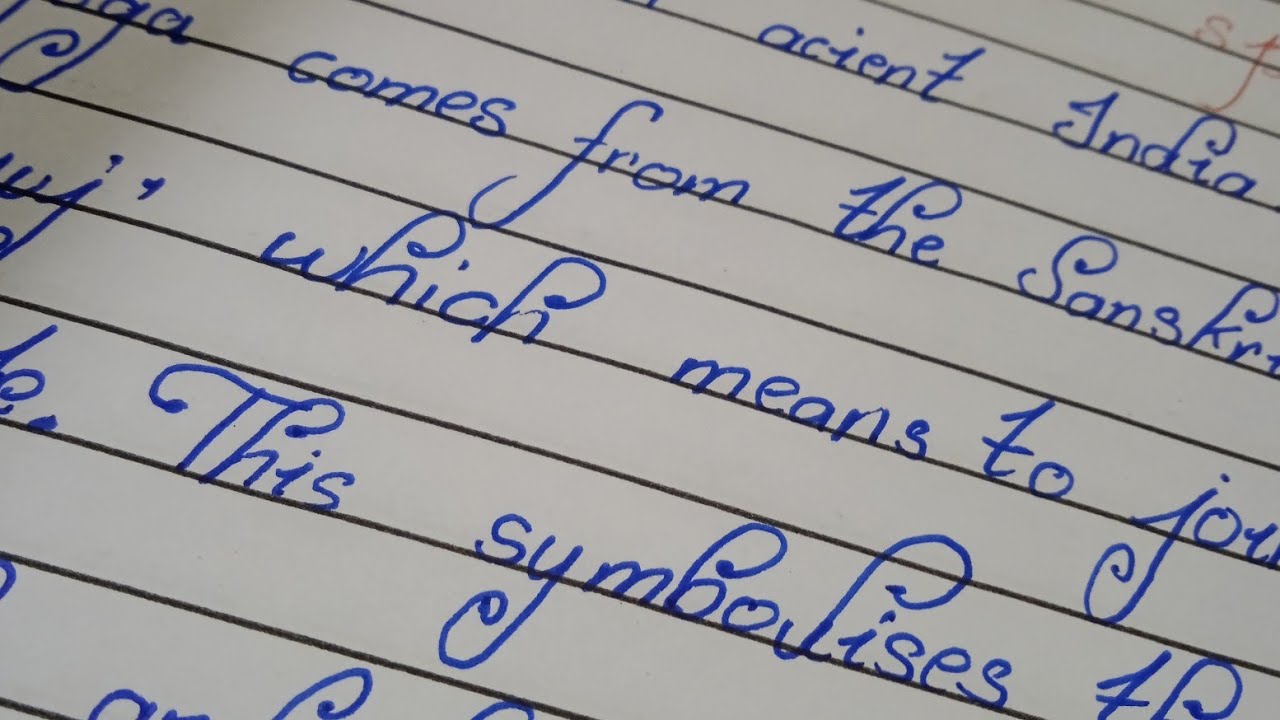 acient India
comes from the Sanskr
uj', which means to join
This symbolises th